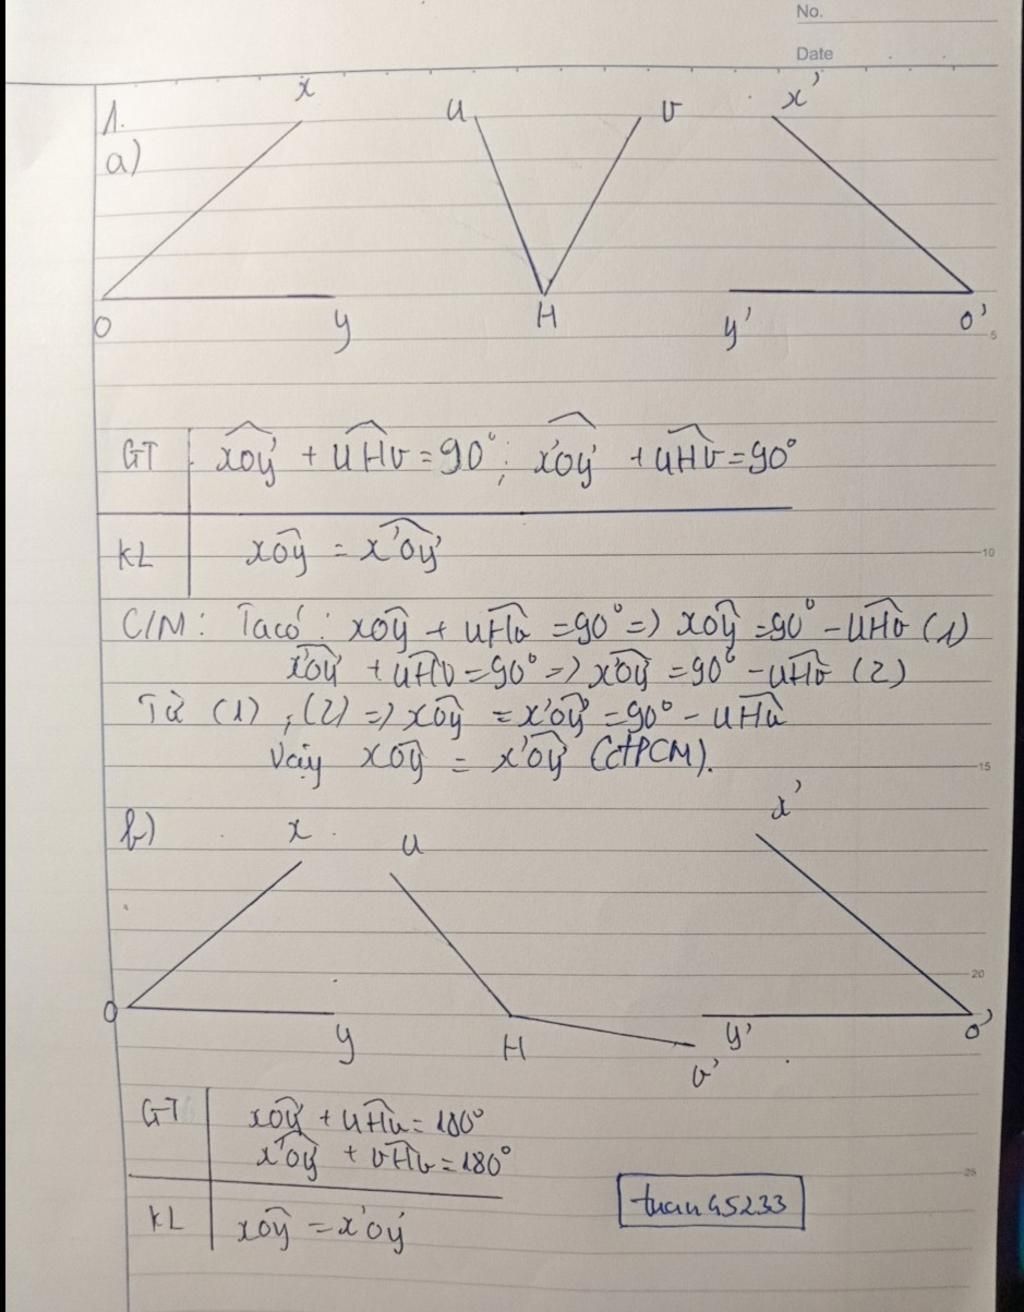 No.
Date
1.
a)
x
u
v
x'
O
y
H
y'
O'
5
GT xOy + uHv = 90°; x'Oy' + uHv = 90°
KL xOy = x'Oy'
10
C/M: Ta có: xOy + uHv = 90° => xOy = 90° - uHv (1)
x'Oy' + uHv = 90° => x'Oy' = 90° - uHv (2)
Từ (1), (2) => xOy = x'Oy' = 90° - uHv
Vậy xOy = x'Oy' (ĐPCM).
15
b)
x
u
x'
20
O
y
H
v'
y'
O'
GT xOy + uHv = 180°
x'Oy' + vHv = 180°
25
KL xOy = x'Oy'
tuan45233